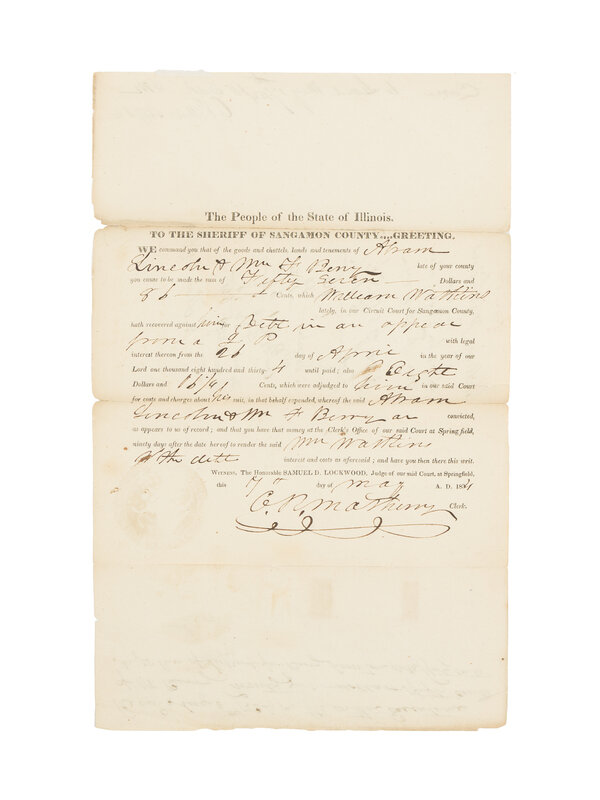 The People of the State of Illinois.
TO THE SHERIFF OF SANGAMON COUNTY....GREETING,
WE command you that of the goods and chattels, lands and tenements of Abram
Lincoln & Wm F Berry late of your county
you cause to be made the sum of Fifty Seven Dollars and
86 Cents, which William Watkins
lately, in our Circuit Court for Sangamon County,
hath recovered against him for Debt in an appeal
from a J P with legal
interest thereon from the 26 day of April in the year of our
Lord one thousand eight hundred and thirty- 4 until paid; also Eight
Dollars and Cents, which were adjudged to him in our said Court
for costs and charges about his suit, in that behalf expended, whereof the said Abram
Lincoln & Wm F Berry are convicted,
as appears to us of record; and that you have that money at the Clerk's Office of our said Court at Springfield,
ninety days after the date hereof to render the said Wm Watkins
debt interest and costs as aforesaid; and have you then there this writ.
WITNESS, The Honorable SAMUEL D. LOCKWOOD, Judge of our said Court, at Springfield,
this 7th day of May A. D. 1834
C. R. Matheny Clerk.